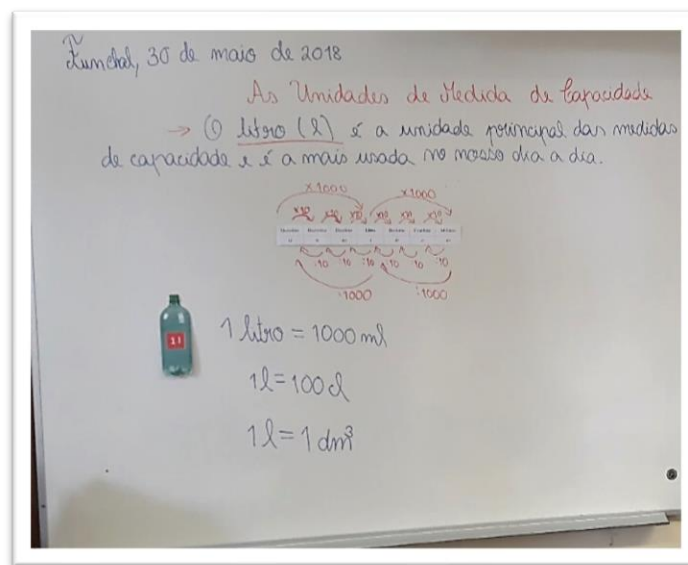 Funchal, 30 de maio de 2018
As Unidades de Medida de Capacidade
→ O litro (l) é a unidade principal das medidas
de capacidade e é a mais usada no nosso dia a dia.
x1000 x1000
x10 x10 x10 x10 x10 x10
Litro
:10 :10 :10 :10 :10 :10
:1000 :1000
1 l
1 litro = 1000 ml
1l = 100 cl
1l = 1 dm³